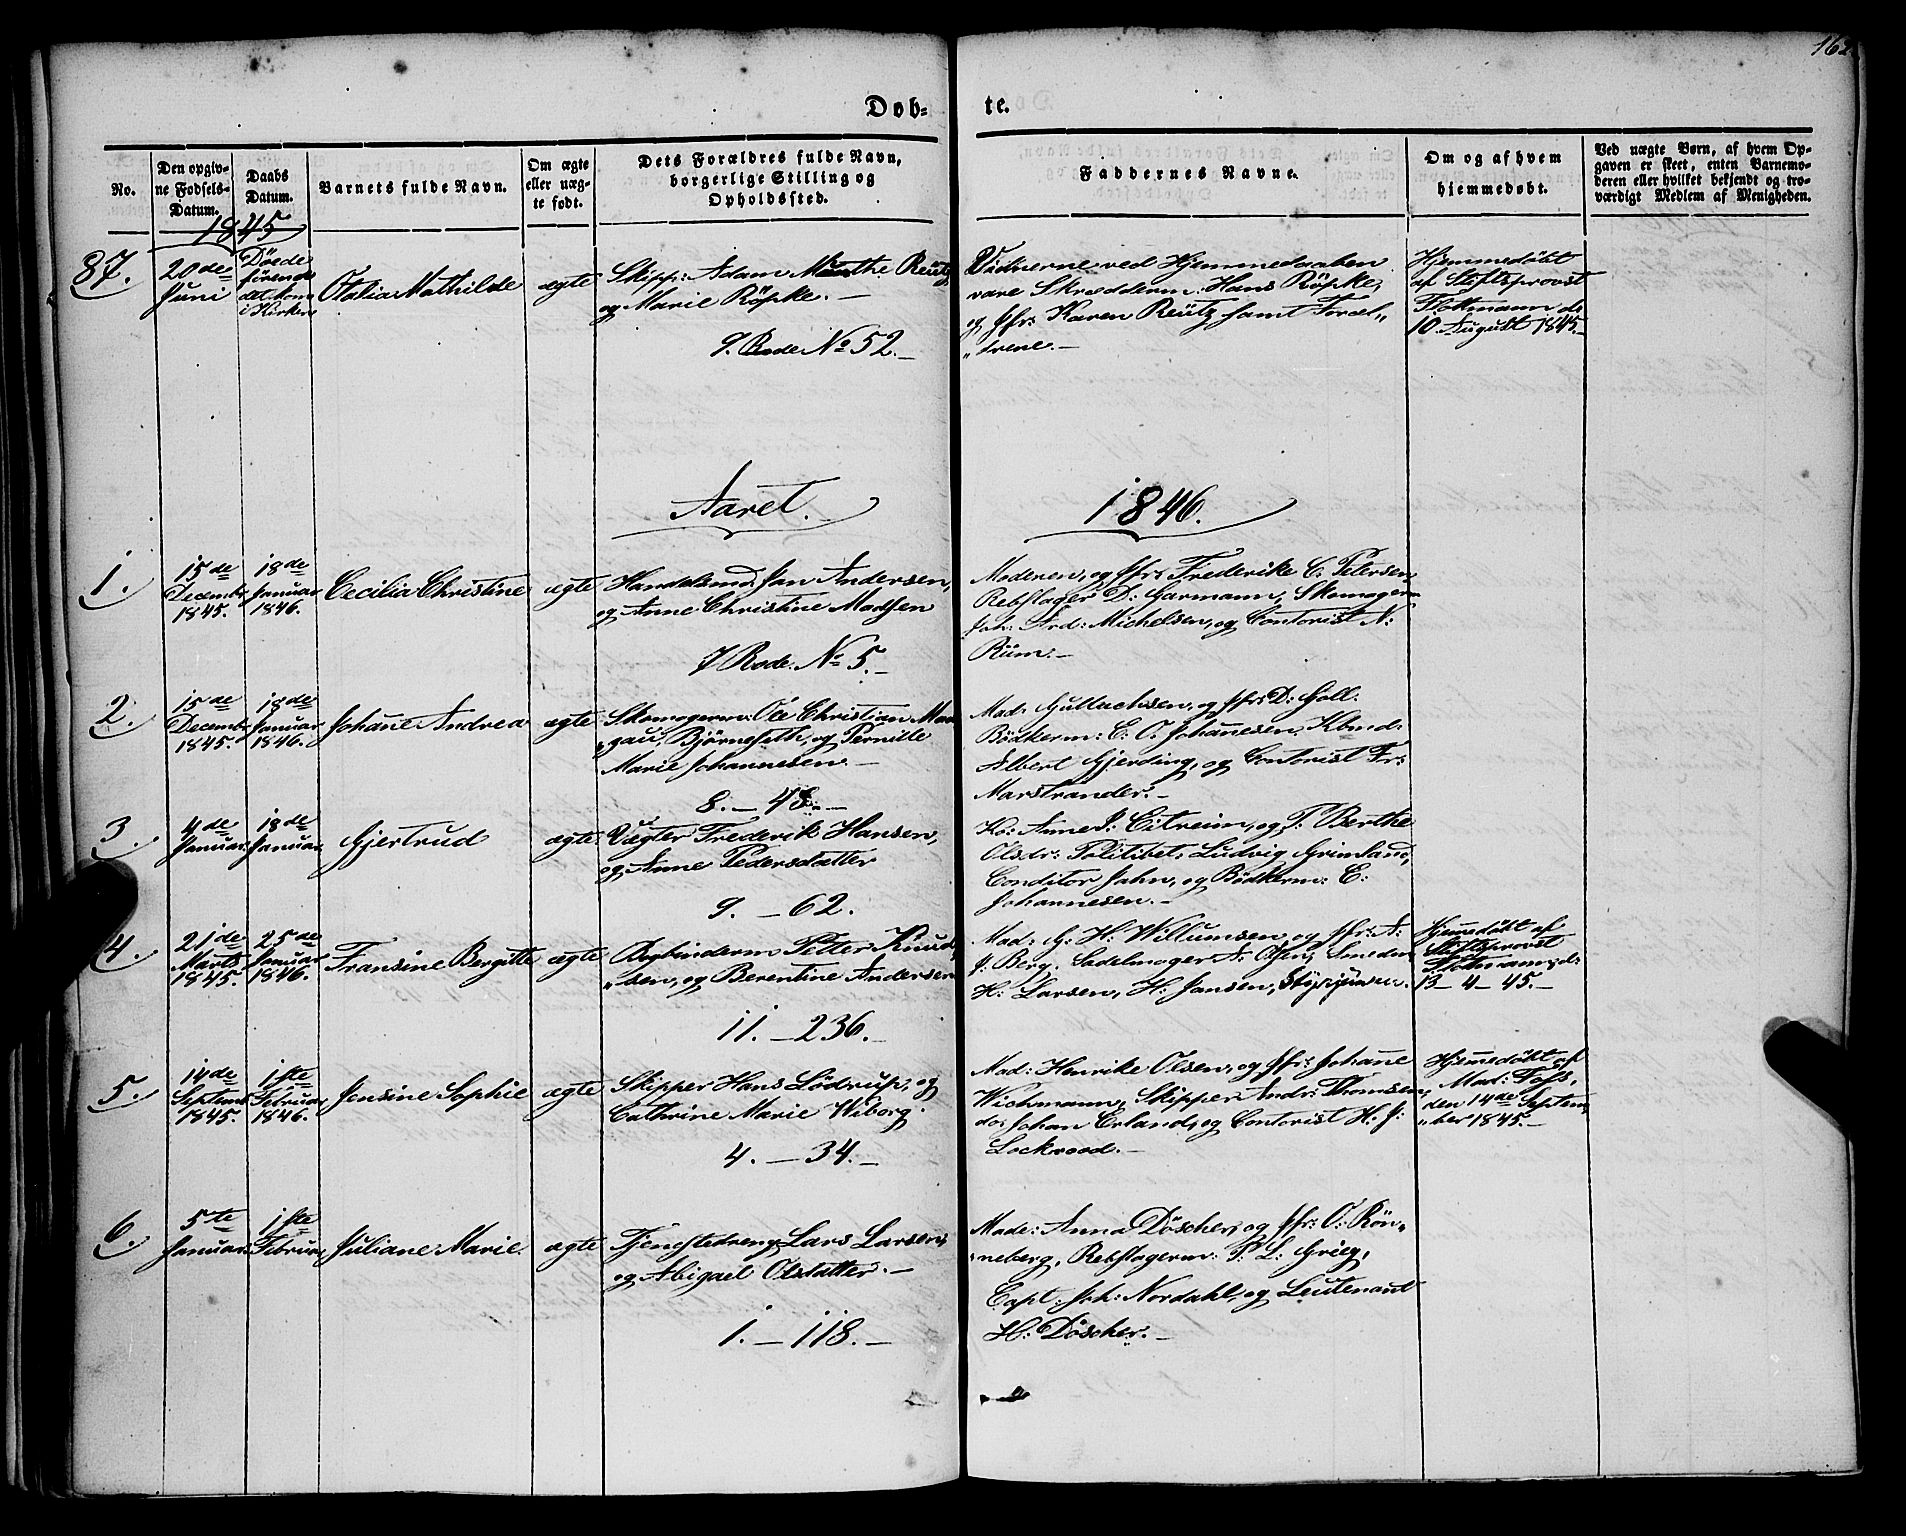 162
Døb=
te.
No.
Den opgiv-
ne Fødsels-
Datum.
Daabs
Datum.
Barnets fulde Navn.
Om ægte
eller uæg-
te født.
Dets Forældres fulde Navn,
borgerlige Stilling og
Opholdssted.
Faddernes Navne.
Om og af hvem
hjemmedøbt.
Ved uægte Børn, af hvem Op-
gaven er skeet, enten Barnemo-
deren eller hvilket bekjendt og tro-
værdigt Medlem af Menigheden.
1845
87.
20de
Juni
Døede
førend
det kom
i Kirken
Otalia Mathilde
ægte
Skipp: Adam Munthe Reütz
og Marie Röpke. —
9. Rode No 52. —
Vidnerne ved Hjemmedaaben
vare Skrædderm: Hans Röpke,
og Jfr: Karen Reütz samt Foræl„
„drene. —
Hjemmedøbt
af Stiftsprovst
Flottmann d:
10 August 1845. —
Aaret
1846.
1.
15de
Decembr
1845.
18de
Januar
1846.
Cecilia Christine
ægte
Handelsmd. Jan Andersen,
og Anne Christine Madsen
7 Rode. No 5. —
Moderen, og Jfr: Frederike C. Petersen
Rebslager D: Garmann, Skomagerm
Joh: Ard: Michelsen, og Contorist N:
Rüm. —
2.
15de
Decembr
1845.
18de
Januar
1846.
Johane Andrea
ægte
Skomagerm. Ole Christian Mar„
„gau, Bjørneseth, og Pernille
Marie Johannesen. —
8. — 48. —
Mad: Gullachsen, og Jfr: D: Goll.
Bödkerm: E. O. Johanesen, Kbmd:
Albert Gjerding, og Contorist Fr:
Marstrander. —
3.
4de
Januar
18de
Januar
Gjertrud
ægte
Vægter Frederik Hansen,
og Anne Pedersdatter
9. — 62.
Ko: Anne J: Citreim, og P. Berthe
Olsdr: Politibet. Ludvig Grimland,
Conditor Jahn, og Bödkerm: E:
Johannesen. —
4.
21de
Marts
1845.
25de
Januar
1846.
Fransine Bergitte
ægte
Bogbinderm: Petter Knud„
„sen, og Berentine Andersen
11. — 236. —
Mad: G: H: Willumsen, og Jfr: A:
J: Berg. Sadelmager A: Olsen, Smedm
H: Larsen, H: Jansen,
Hjemedøbt af
Stiftsprovst
Flottmann d:
13 — 4 — 45. —
5.
14de
Septembr
1845.
1ste
Februar
1846.
Jensine Sophie
ægte
Skipper Hans Lödrup, og
Cathrine Marie Wiborg.
4. — 34. —
Mad: Henrike Olsen, og Jfr: Johane
Wichmann, Skipper Andr: Thomsen,
do: Johan Erland, og Contorist H. J:
Lockwood. —
Hjemedøbt af
Mad: Foss,
den 14de Septem„
„ber 1845. —
6.
5te
Januar
1ste
Februar
Juliane Marie
ægte
Tjenestedreng Lars Larsen,
og Abigael Olsdatter. —
1. — 118. —
Made: Anna Döscher, og Jfr: O: Rön„
„neberg, Rebslagerm: P. L: Grieg,
Capt: Joh: Nordahl, og Leutenant
H: Döscher. —